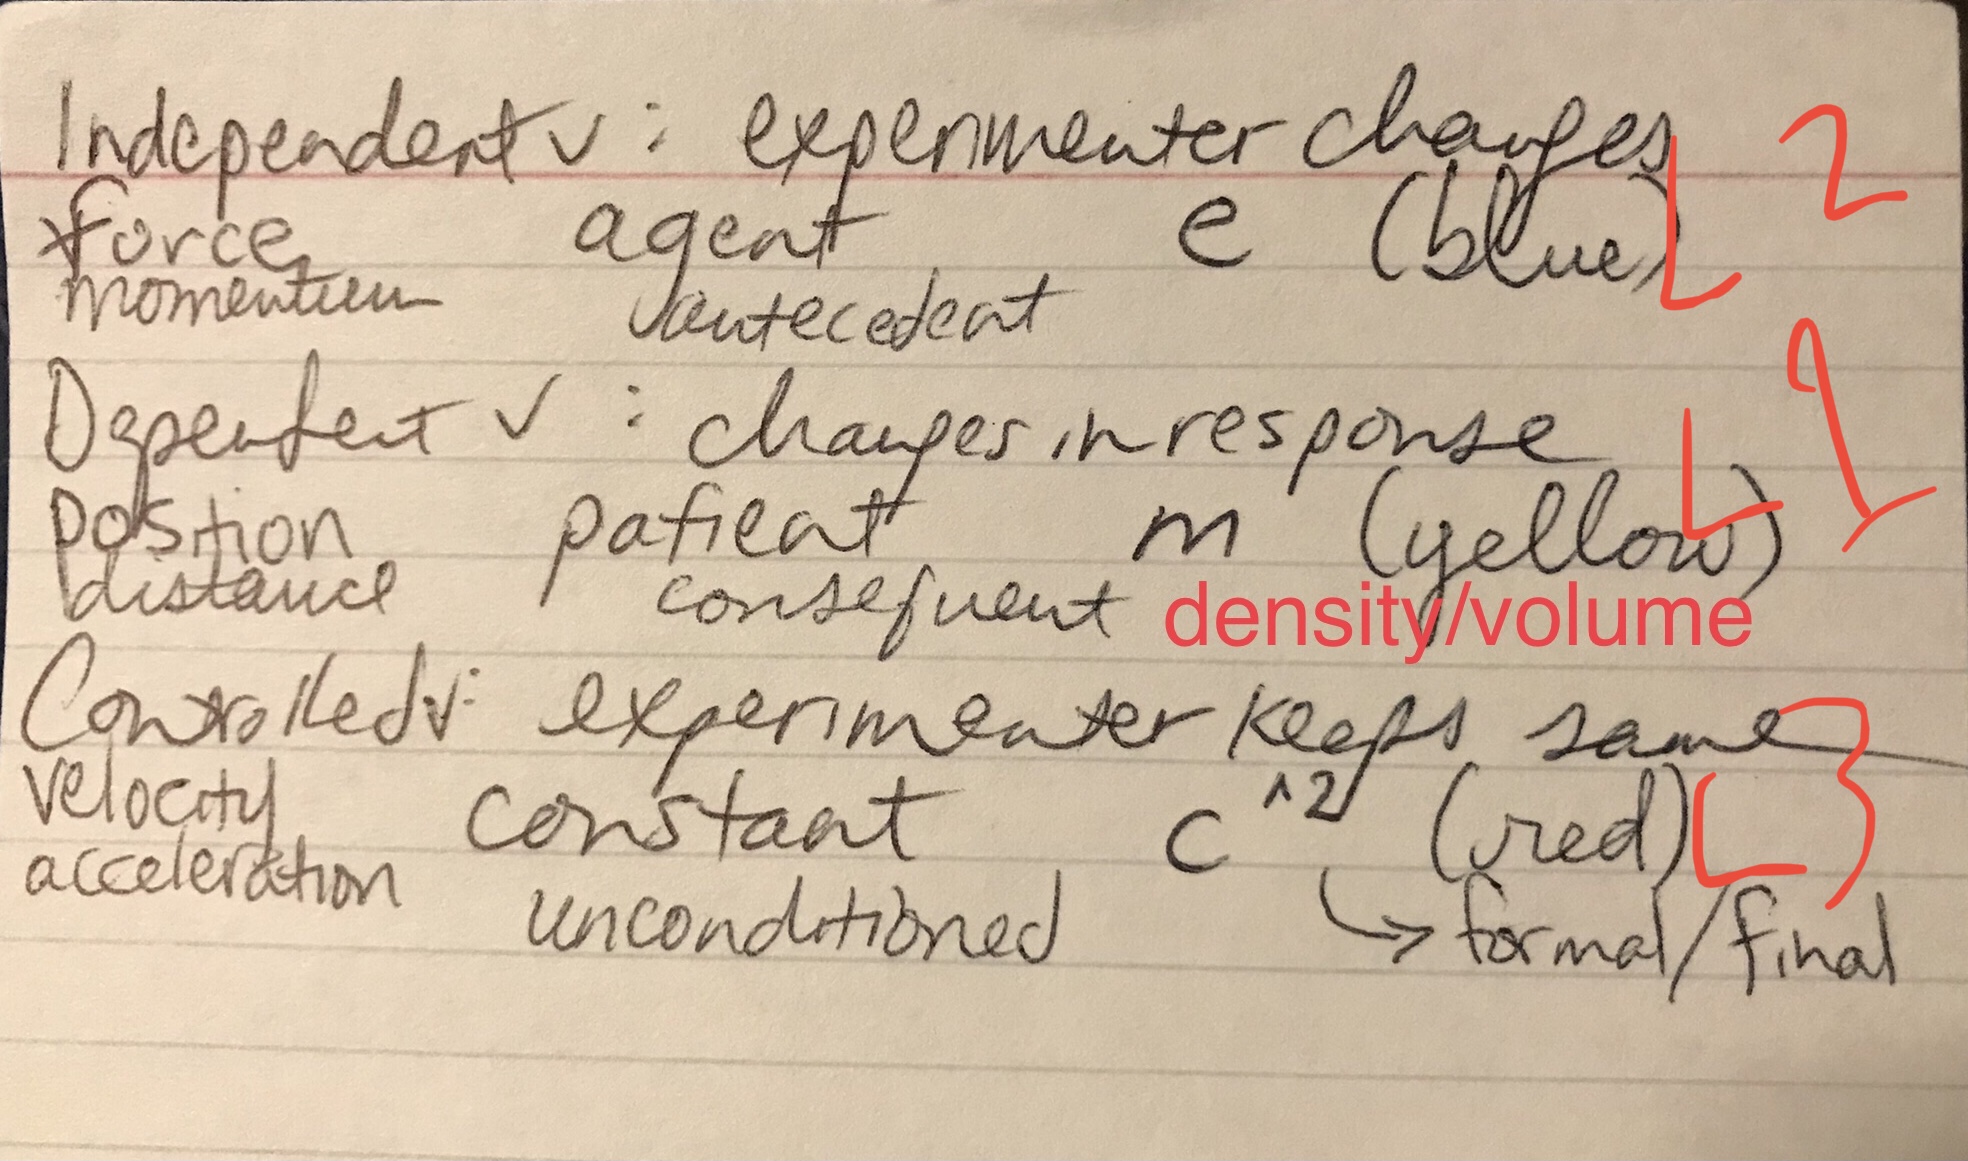 Independent v : experimenter changes L 2
force agent e (blue)
momentum antecedent
Dependent v : changes in response L 1
position patient m (yellow)
distance consequent density/volume
Controlled v: experimenter keeps same
velocity constant c^2 (red) L 3
acceleration unconditioned → formal/final